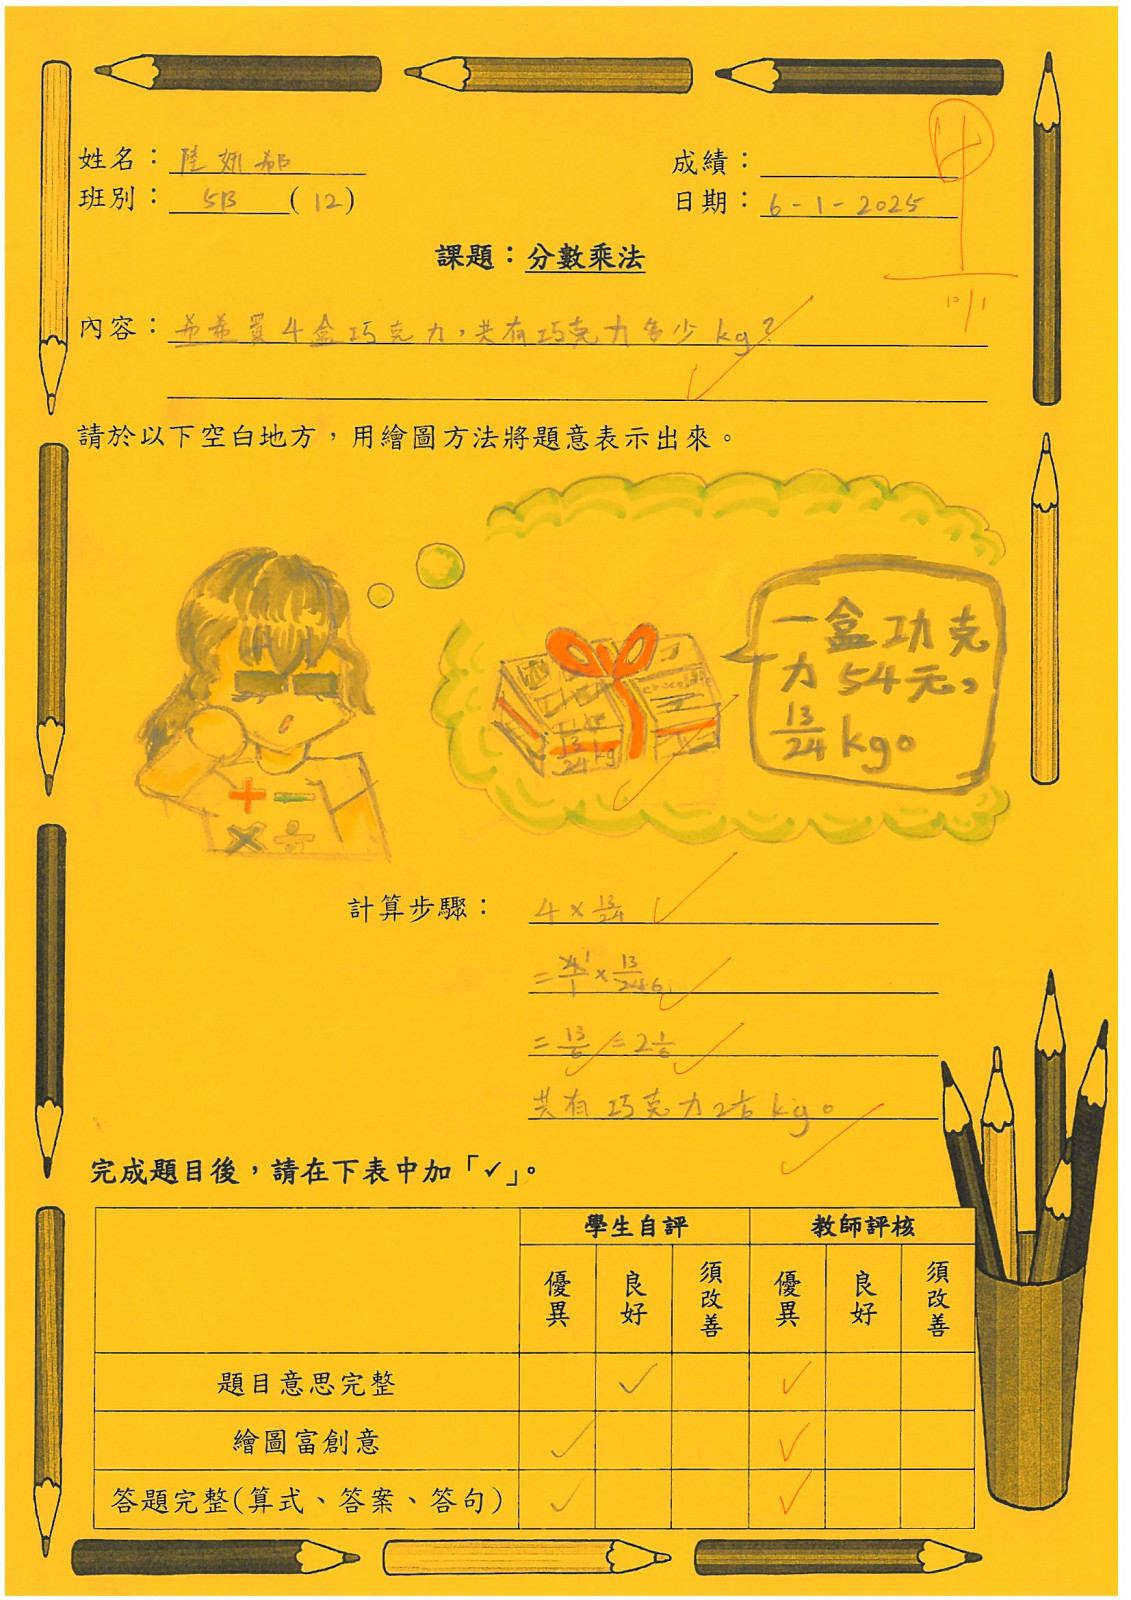 姓名：陸妍希
成績：
班別：5B (12)
日期：6-1-2025
10/1
課題：分數乘法
內容：希希買4盒巧克力，共有巧克力多少kg？
請於以下空白地方，用繪圖方法將題意表示出來。
一盒功克
力54元，
13/24 kg。
chocolate
13/24 kg
+ −
× ÷
計算步驟：4 × 13/24
= 4/1 1 × 13/24 6
= 13/6 = 2 1/6
共有巧克力2 1/6 kg。
完成題目後，請在下表中加「✓」。
學生自評 教師評核
優異 良好 須改善 優異 良好 須改善
題目意思完整 ✓ ✓
繪圖富創意 ✓ ✓
答題完整(算式、答案、答句) ✓ ✓